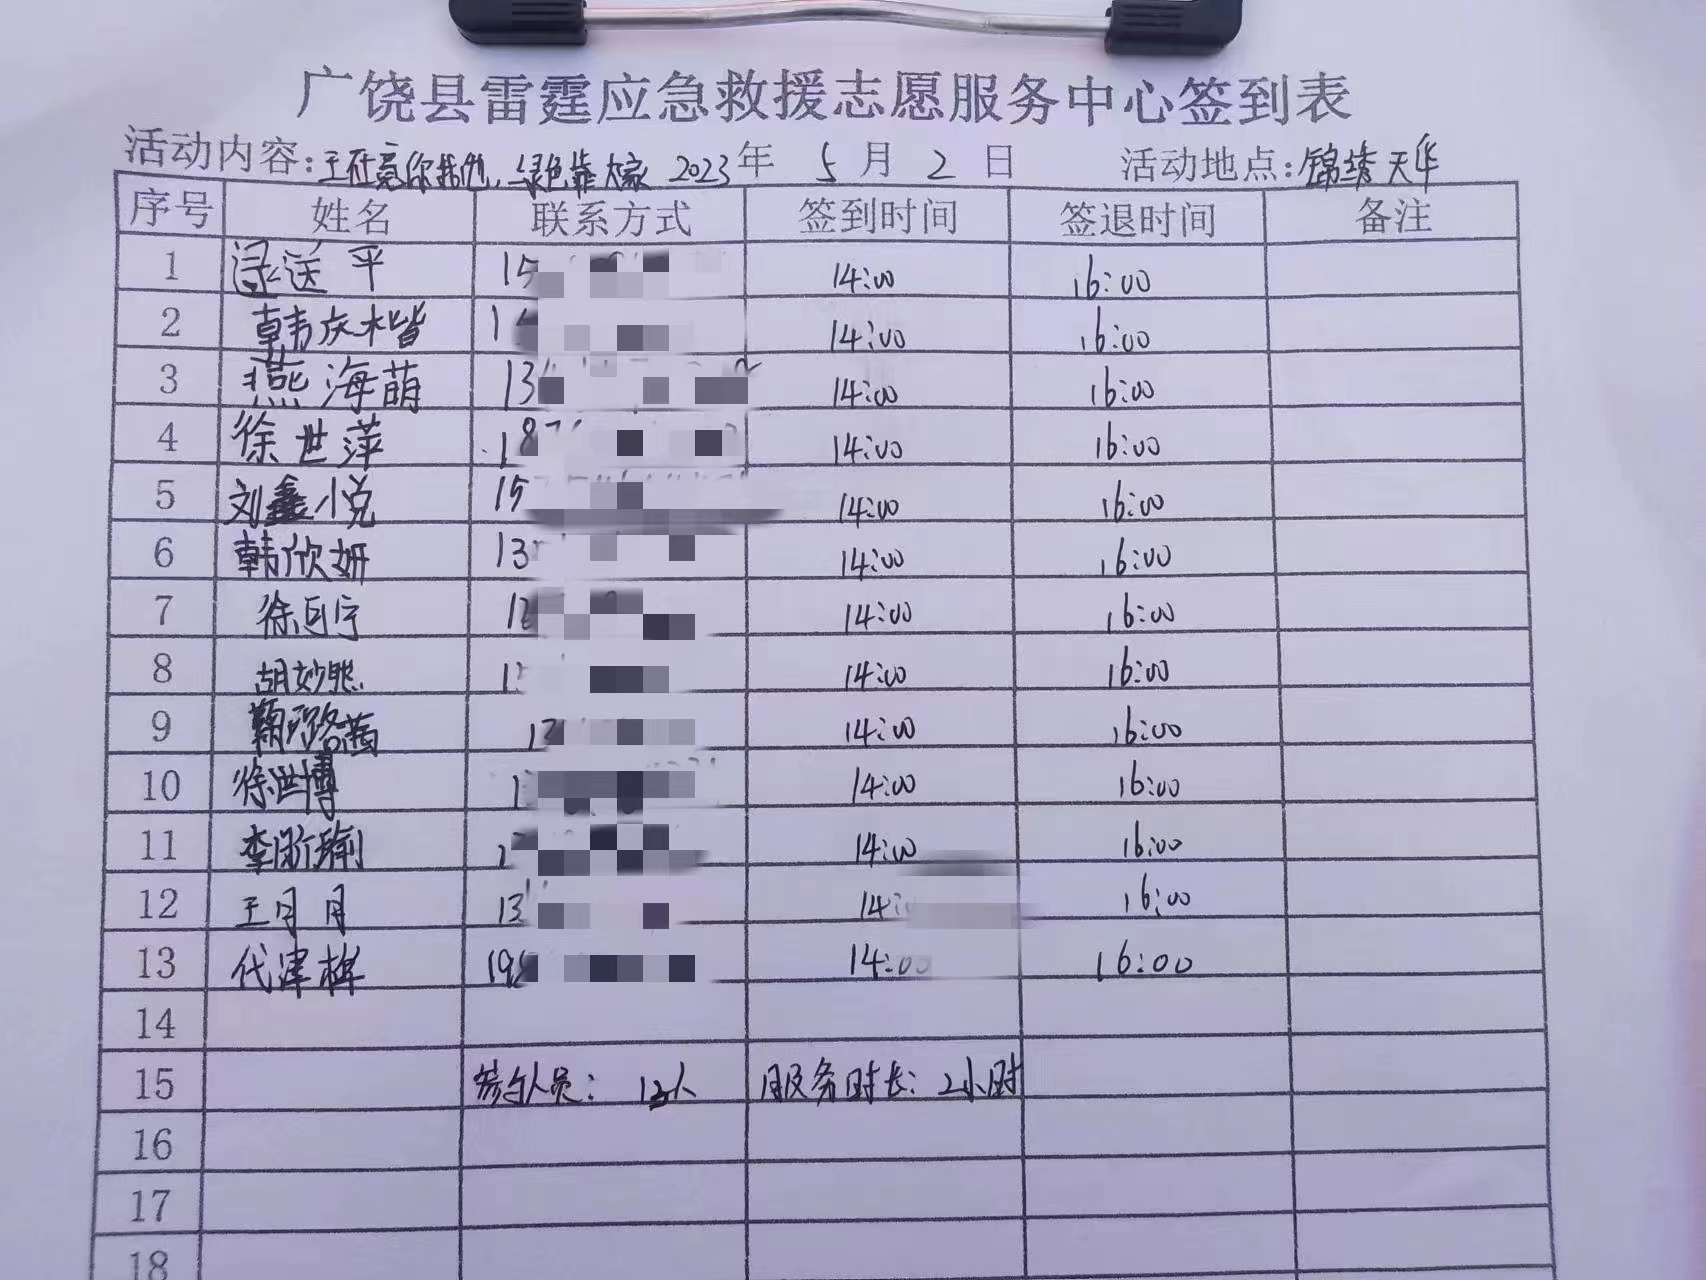 广饶县雷霆应急救援志愿服务中心签到表
活动内容: 绿色靠大家 2023年 5月 2日 活动地点: 锦绣天华
序号 姓名 联系方式 签到时间 签退时间 备注
1 平 15 14:00 16:00
2 韩庆楷 1 14:00 16:00
3 燕海萌 13 14:00 16:00
4 徐世萍 187 14:00 16:00
5 刘鑫悦 15 14:00 16:00
6 韩欣妍 13 14:00 16:00
7 徐宁 1 14:00 16:00
8 胡妙熙 1 14:00 16:00
9 鞠璐茜 1 14:00 16:00
10 徐世博 1 14:00 16:00
11 李 1 14:00 16:00
12 王月月 13 14: 16:00
13 代津梓 19 14:00 16:00
14
15 参与人员: 13人 服务时长: 2小时
16
17
18